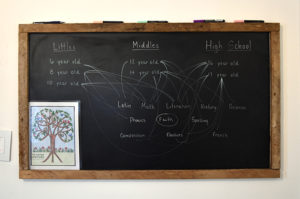 Littles Middles High School
6 year old 12 year old 16 year old
8 year old 14 year old year old
10 year old
Latin Math Literature History Science
Phonics Faith Spelling
Composition French